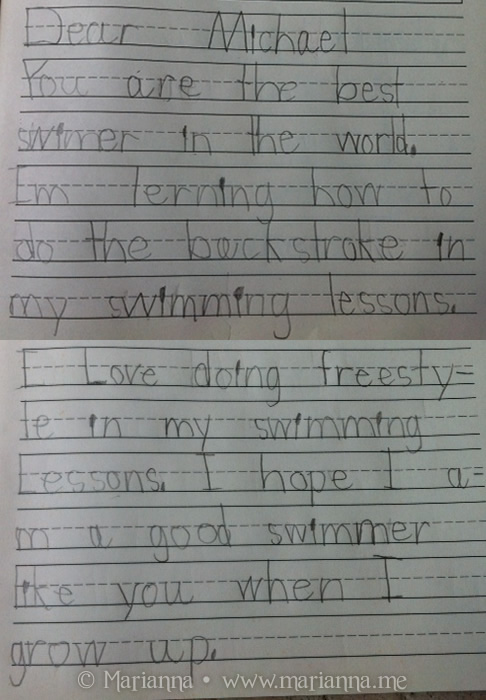 Dear Michael
You are the best
swimer in the world.
Im lerning how to
do the backstroke in
my swimming lessons.
I Love doing freesty=
le in my swimming
Lessons. I hope I a=
m a good swimmer
like you when I
grow up.
© Marianna • www.marianna.me